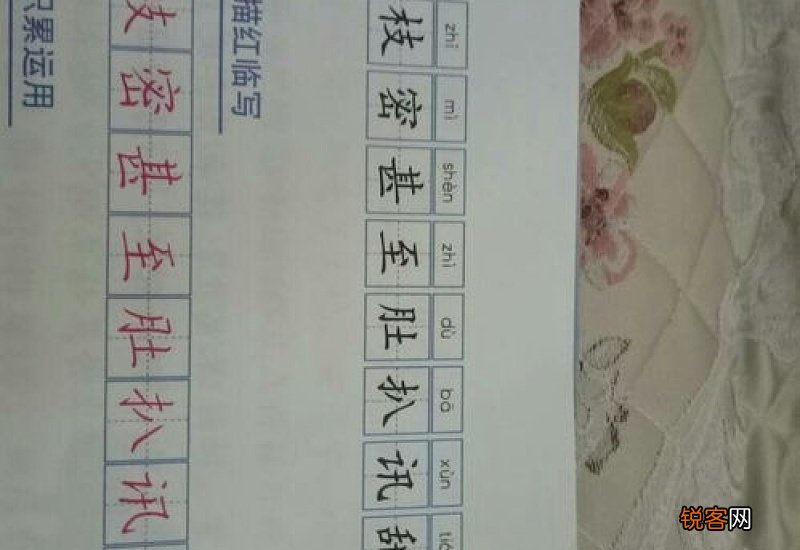 zhī mì shèn zhì dù bā xùn
枝 密 甚 至 肚 扒 讯
描红临写
密 甚 至 肚 扒 讯
累运用
锐客网